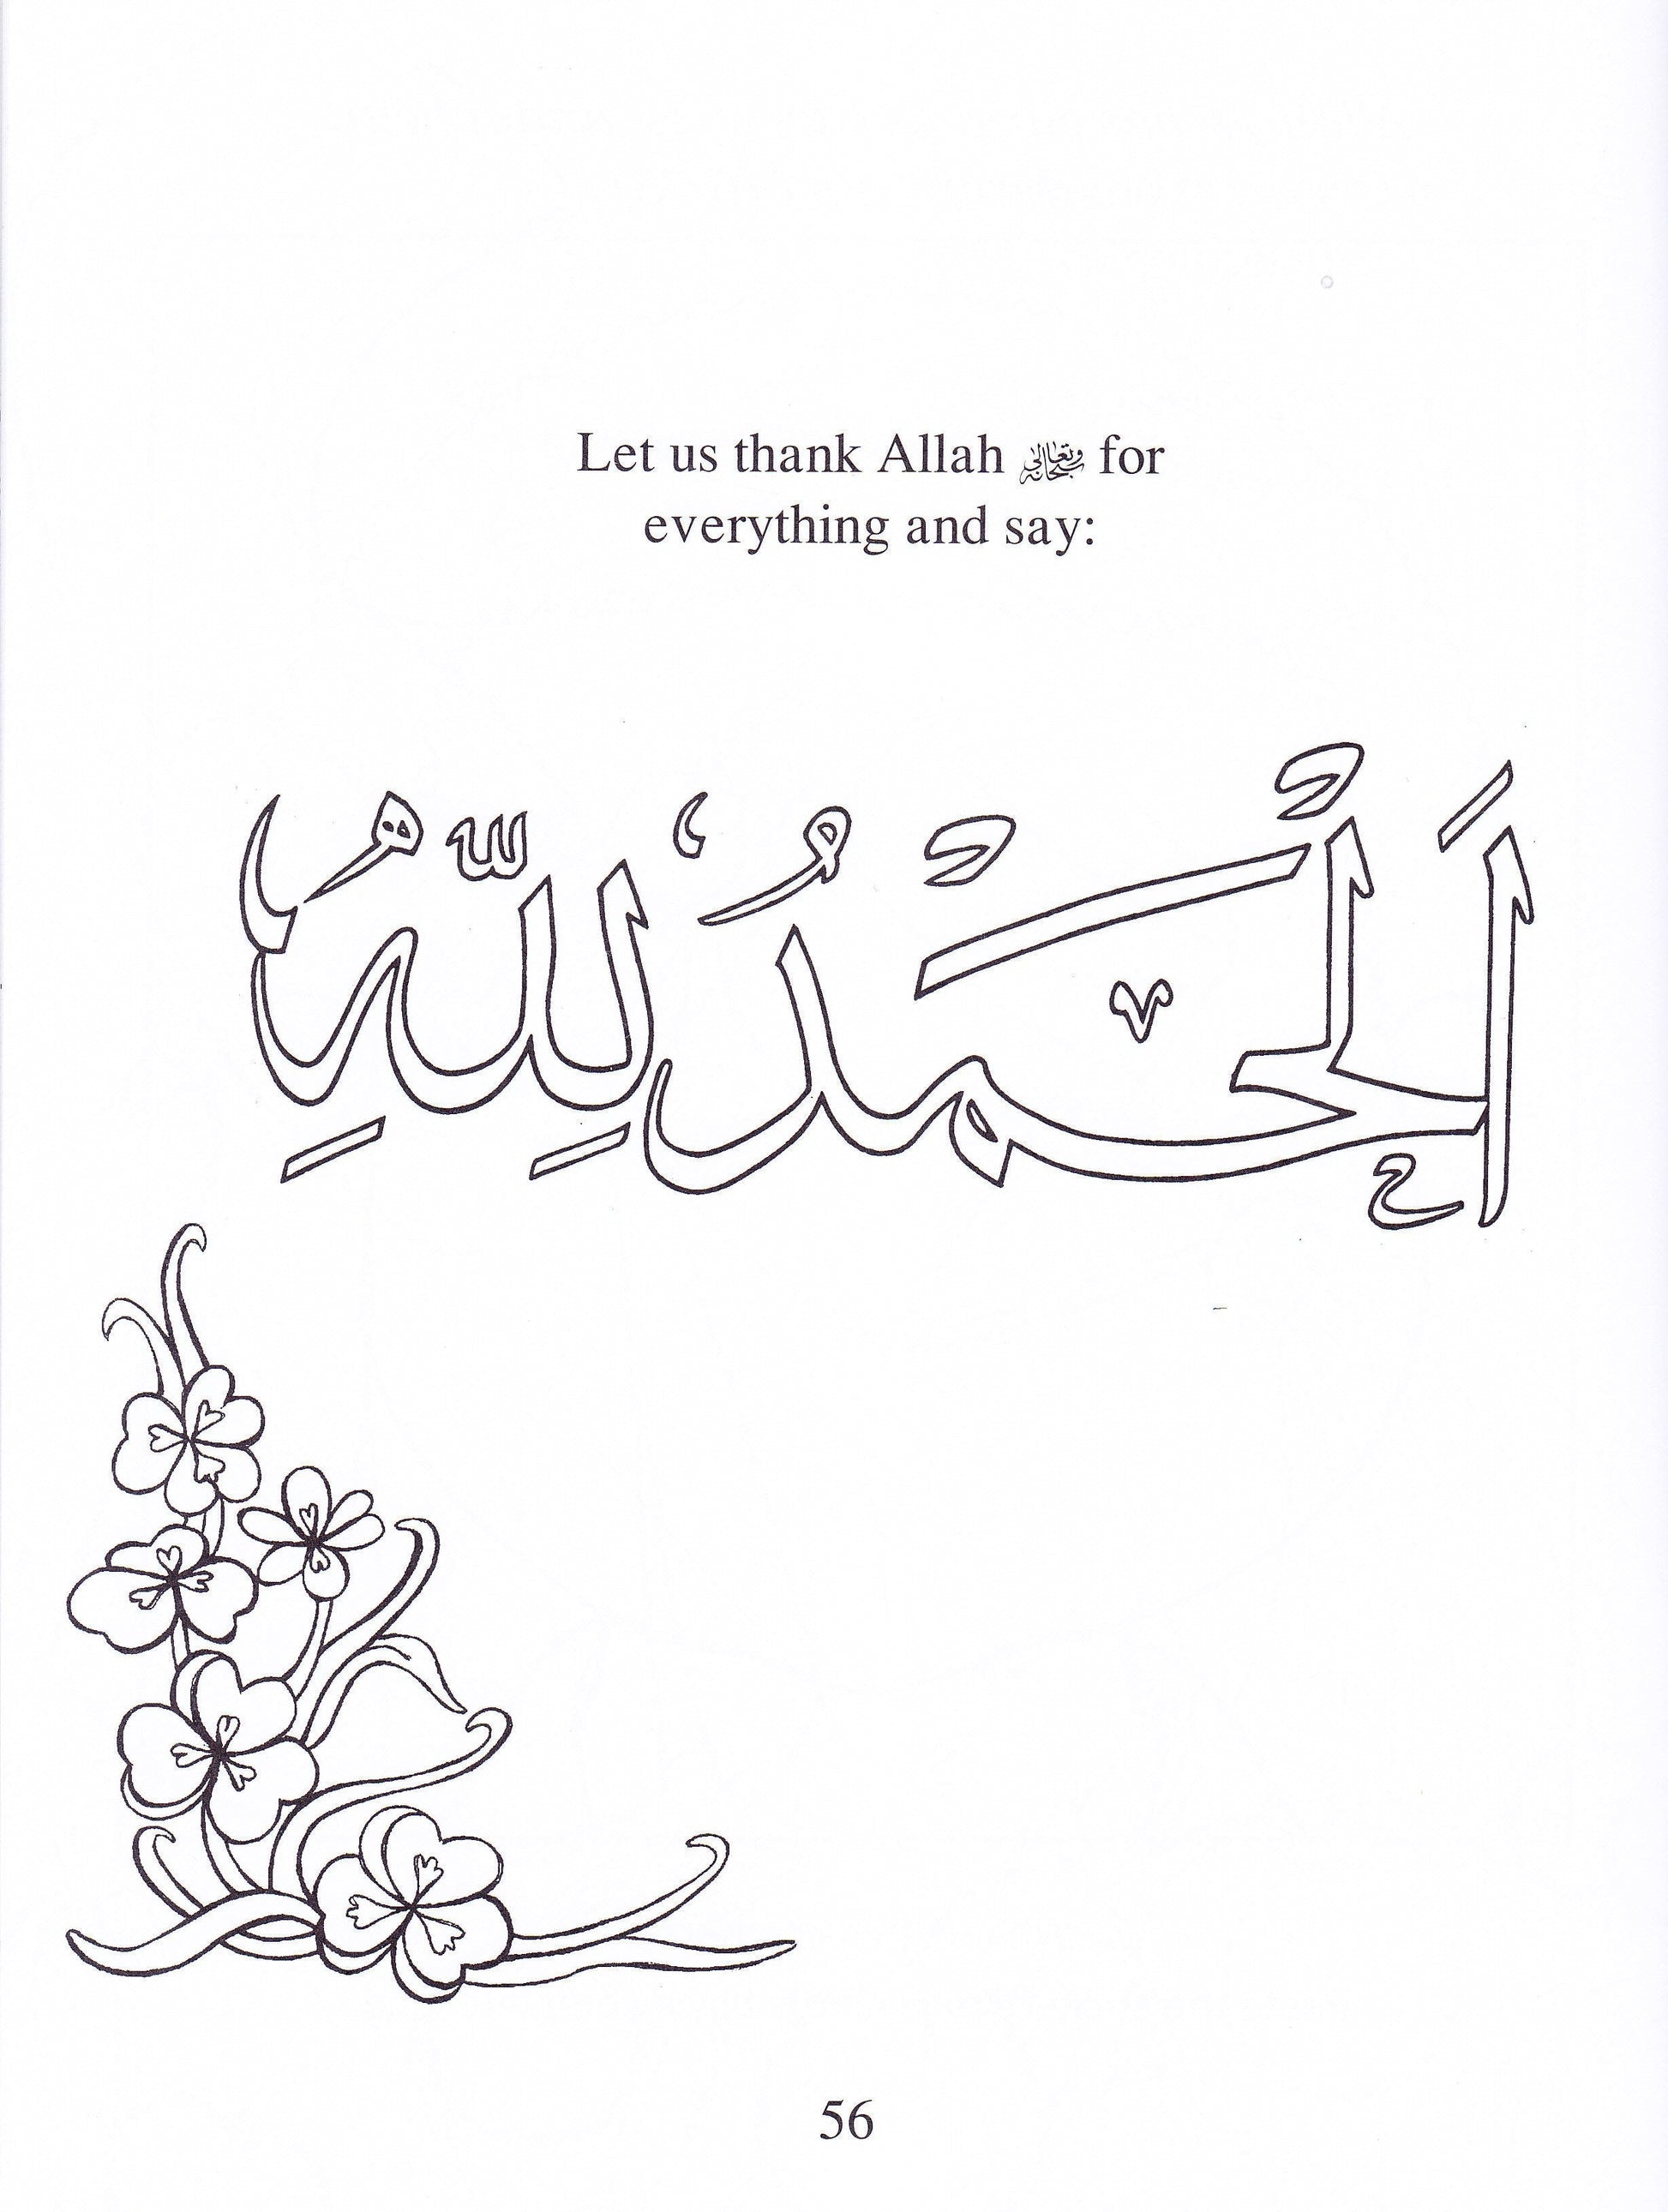 Let us thank Allah سبحانه وتعالى for
everything and say:
اَلْحَمْدُ لِلّٰهِ
56